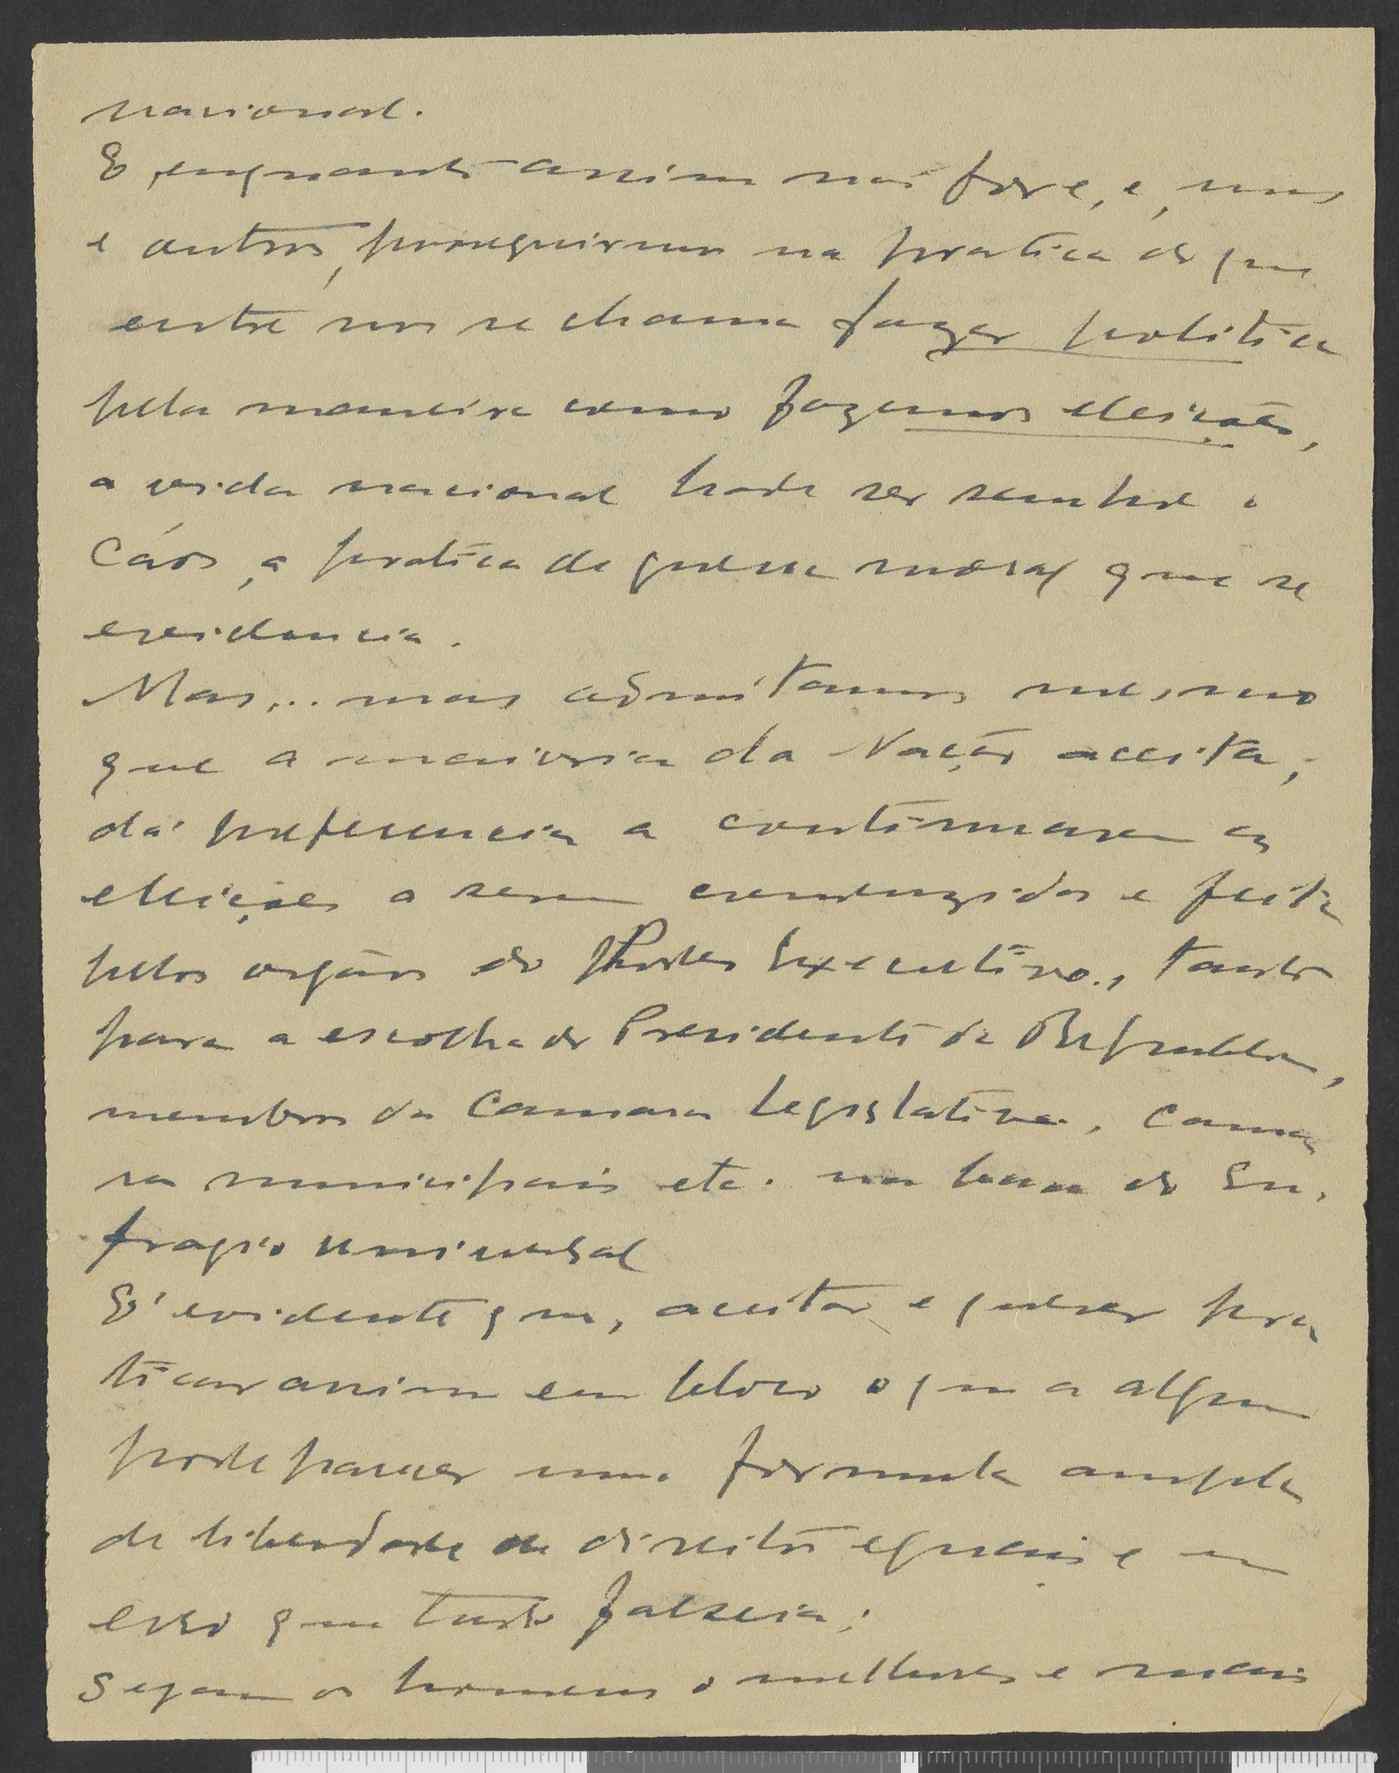 nacional.
E, enquanto assim não fôr e, e, uns
e outros, proseguirmos na pratica do que
entre nos se chama fazer politica
pela maneira como fazemos eleições,
a vida nacional hade ser sempre o
Cáos, a pratica de guerra moral que se
evidencia.
Mas... mas admitamos mesmo
que a maioria da Nação aceita,
dá preferencia a continuarem as
eleições a serem conduzidas e feita
pelos orgãos do Poder Executivo, tanto
para a escolha do Presidente da Republica,
membros da Camara Legislativa, Cama
ra municipais etc. na base do Su,
fragio universal
E' evidente que, aceitar e querer pra
ticar assim em bloco o que a algum
pode parecer uma formula ampla
de liberdade de direitos eguais e um
erro que tudo falseia;
Sejam os homens o melhores e mais